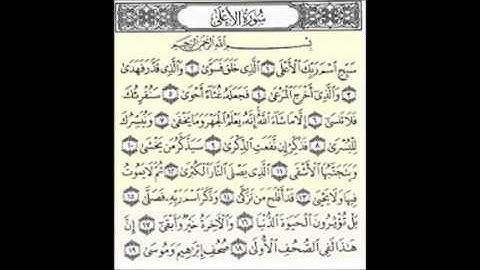 سُورَةُ الأَعْلَى
بِسْمِ اللَّهِ الرَّحْمَٰنِ الرَّحِيمِ
سَبِّحِ اسْمَ رَبِّكَ الْأَعْلَى ١ الَّذِي خَلَقَ فَسَوَّىٰ ٢ وَالَّذِي قَدَّرَ فَهَدَىٰ
٣ وَالَّذِي أَخْرَجَ الْمَرْعَىٰ ٤ فَجَعَلَهُ غُثَاءً أَحْوَىٰ ٥ سَنُقْرِئُكَ
فَلَا تَنسَىٰ ٦ إِلَّا مَا شَاءَ اللَّهُ إِنَّهُ يَعْلَمُ الْجَهْرَ وَمَا يَخْفَىٰ ٧ وَنُيَسِّرُكَ
لِلْيُسْرَىٰ ٨ فَذَكِّرْ إِن نَّفَعَتِ الذِّكْرَىٰ ٩ سَيَذَّكَّرُ مَن يَخْشَىٰ ١٠
وَيَتَجَنَّبُهَا الْأَشْقَى ١١ الَّذِي يَصْلَى النَّارَ الْكُبْرَىٰ ١٢ ثُمَّ لَا يَمُوتُ
فِيهَا وَلَا يَحْيَىٰ ١٣ قَدْ أَفْلَحَ مَن تَزَكَّىٰ ١٤ وَذَكَرَ اسْمَ رَبِّهِ فَصَلَّىٰ ١٥
بَلْ تُؤْثِرُونَ الْحَيَاةَ الدُّنْيَا ١٦ وَالْآخِرَةُ خَيْرٌ وَأَبْقَىٰ ١٧ إِنَّ
هَٰذَا لَفِي الصُّحُفِ الْأُولَىٰ ١٨ صُحُفِ إِبْرَاهِيمَ وَمُوسَىٰ ١٩